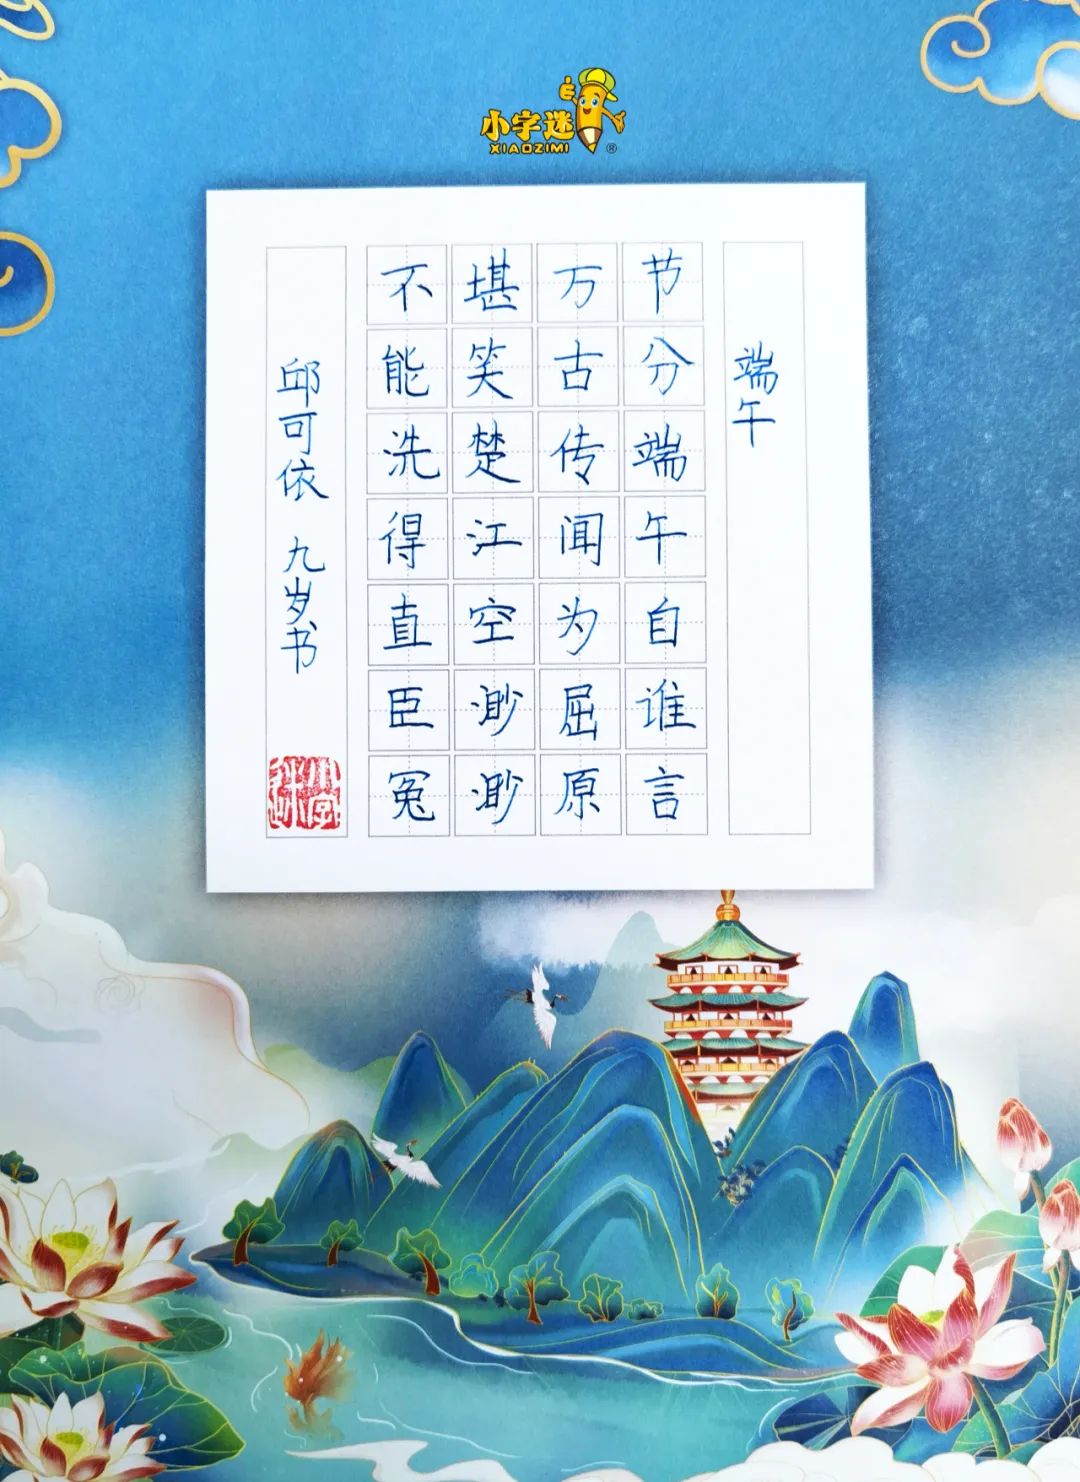 小字迷
XIAOZIMI
®
端午
节分端午自谁言
万古传闻为屈原
堪笑楚江空渺渺
不能洗得直臣冤
邱可依 九岁书
小字迷